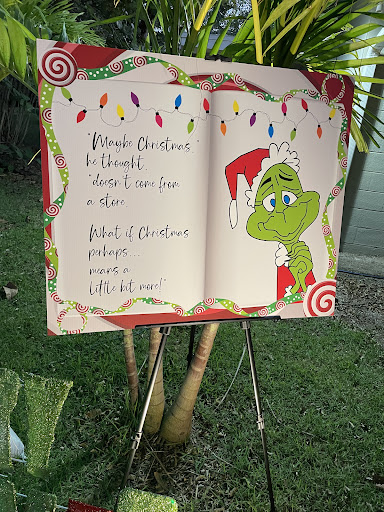 "Maybe Christmas,"
he thought,
"doesn't come from
a store.
What if Christmas
perhaps...
means a
little bit more!"